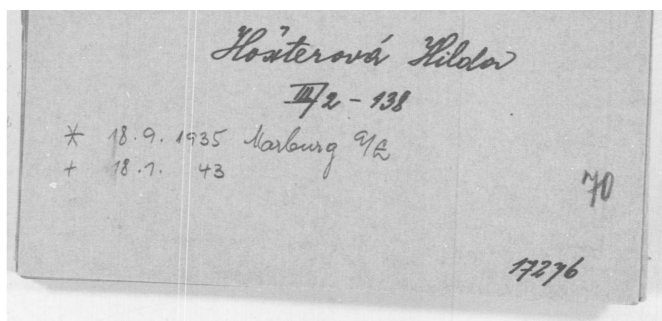 Höxterová Hilda
III/2 - 138
* 18.9.1935 Marburg a/L
+ 18.1. 43
70
17276